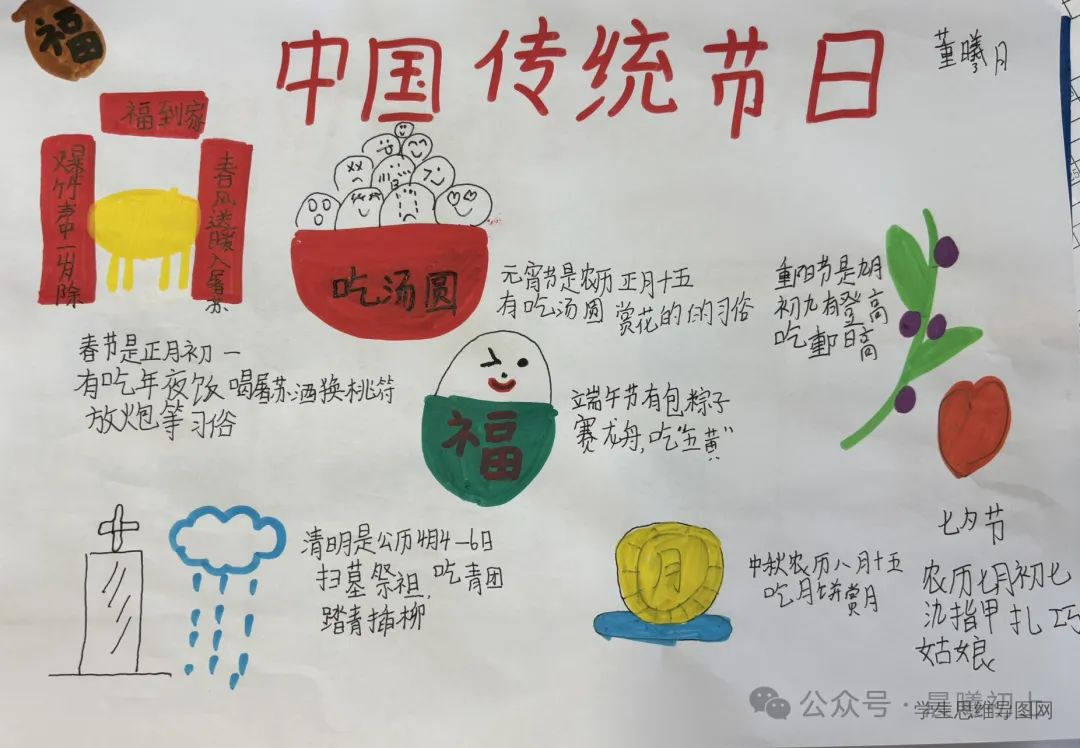 福
中国传统节日
董曦月
福到家
爆竹声中一岁除
春风送暖入屠苏
吃汤圆
元宵节是农历正月十五
有吃汤圆 赏花的的习俗
重阳节是九月
初九有登高
吃重阳高
春节是正月初一
有吃年夜饭 喝屠苏酒换桃符
放炮等习俗
福
端午节有包粽子
赛龙舟,吃“五黄”
清明是公历4月4-6日
扫墓祭祖,吃青团
踏青插柳
月
中秋农历八月十五
吃月饼赏月
七夕节
农历七月初七
指甲扎巧
姑娘
公众号·晨曦初上
学生思维导图网